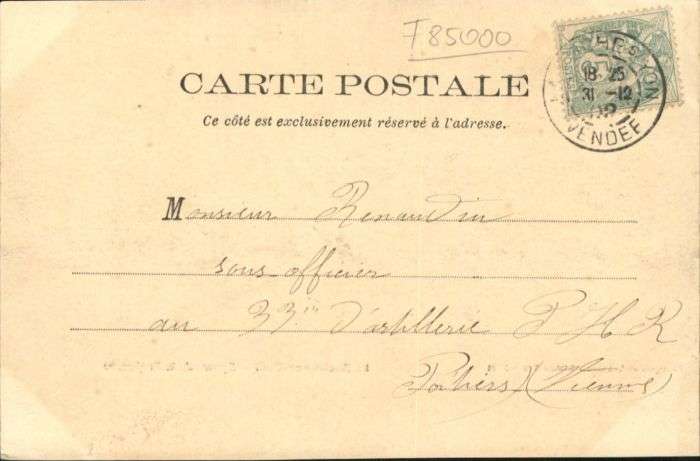 T85000
CARTE POSTALE
Ce côté est exclusivement réservé à l'adresse.
18 25
31 -12
02
VENDÉE
Monsieur Renaudin
sous-officier
au 33in d'artillerie P H R
Poitiers (Vienne)